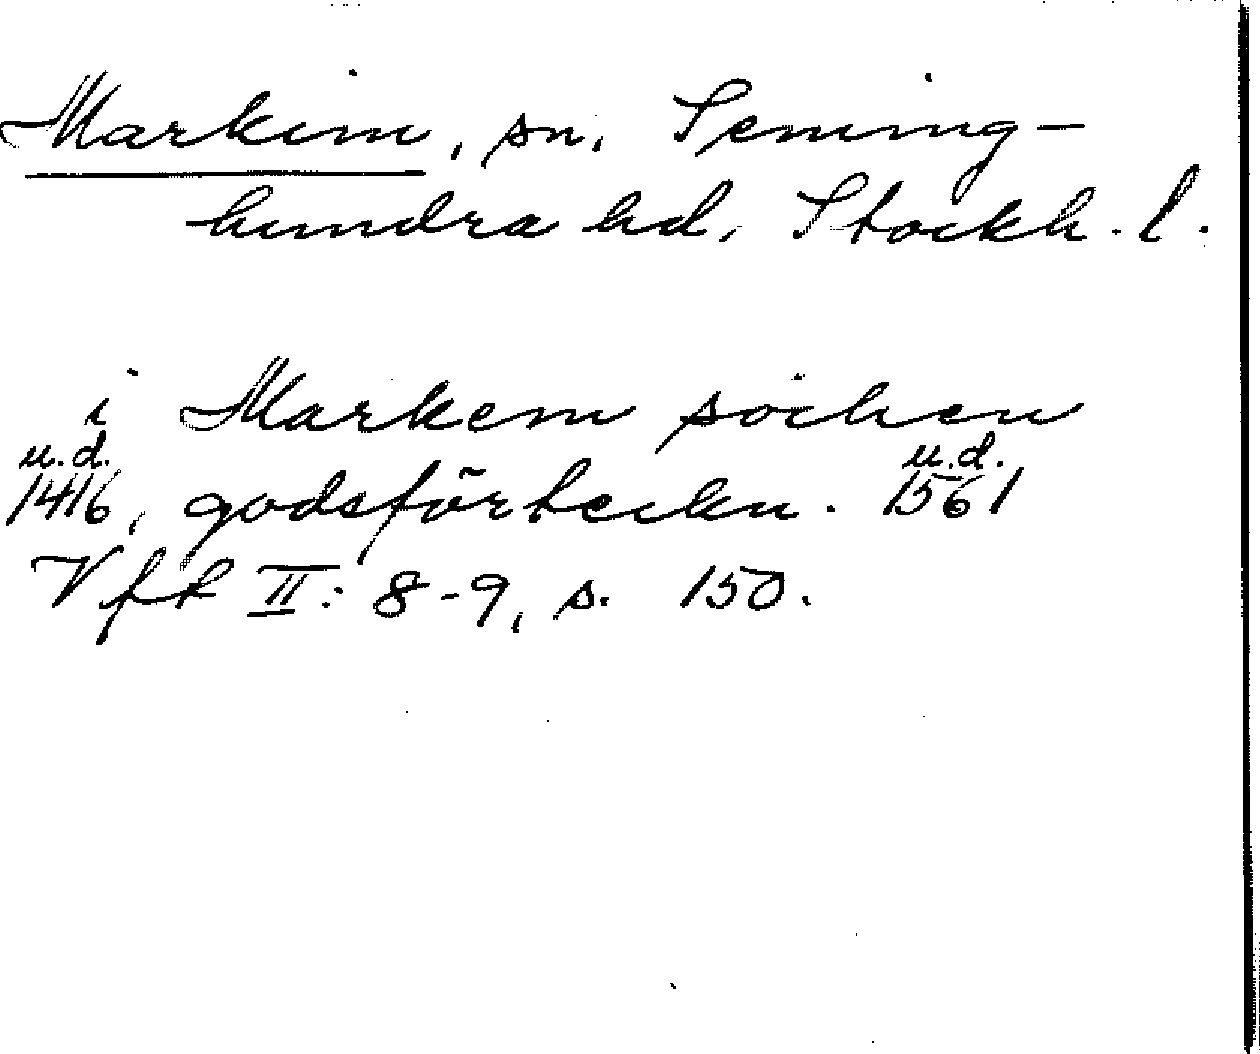 Markim, sn, Seming-
hundra hd, Stockh. l.
i Markem sochen
u.d. u.d.
1416, godsförteckn. 1561
Vfft II: 8-9, s. 150.